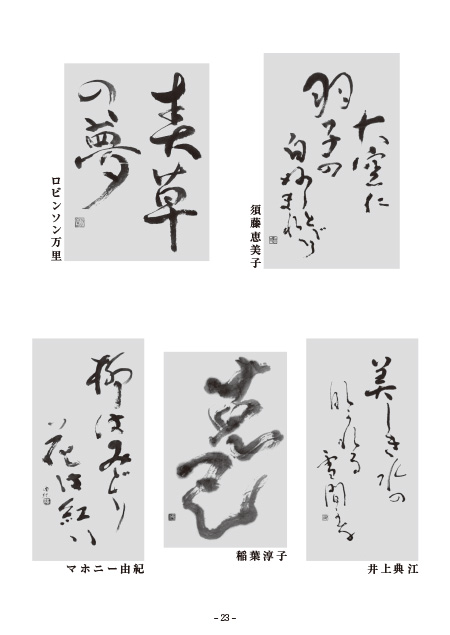 大空に
羽子の
白妙
須藤恵美子
春草
の夢
ロビンソン万里
美しき水の
雪間かな
井上典江
稲葉淳子
柳はみどり
花は紅い
マホニー由紀
– 23 –